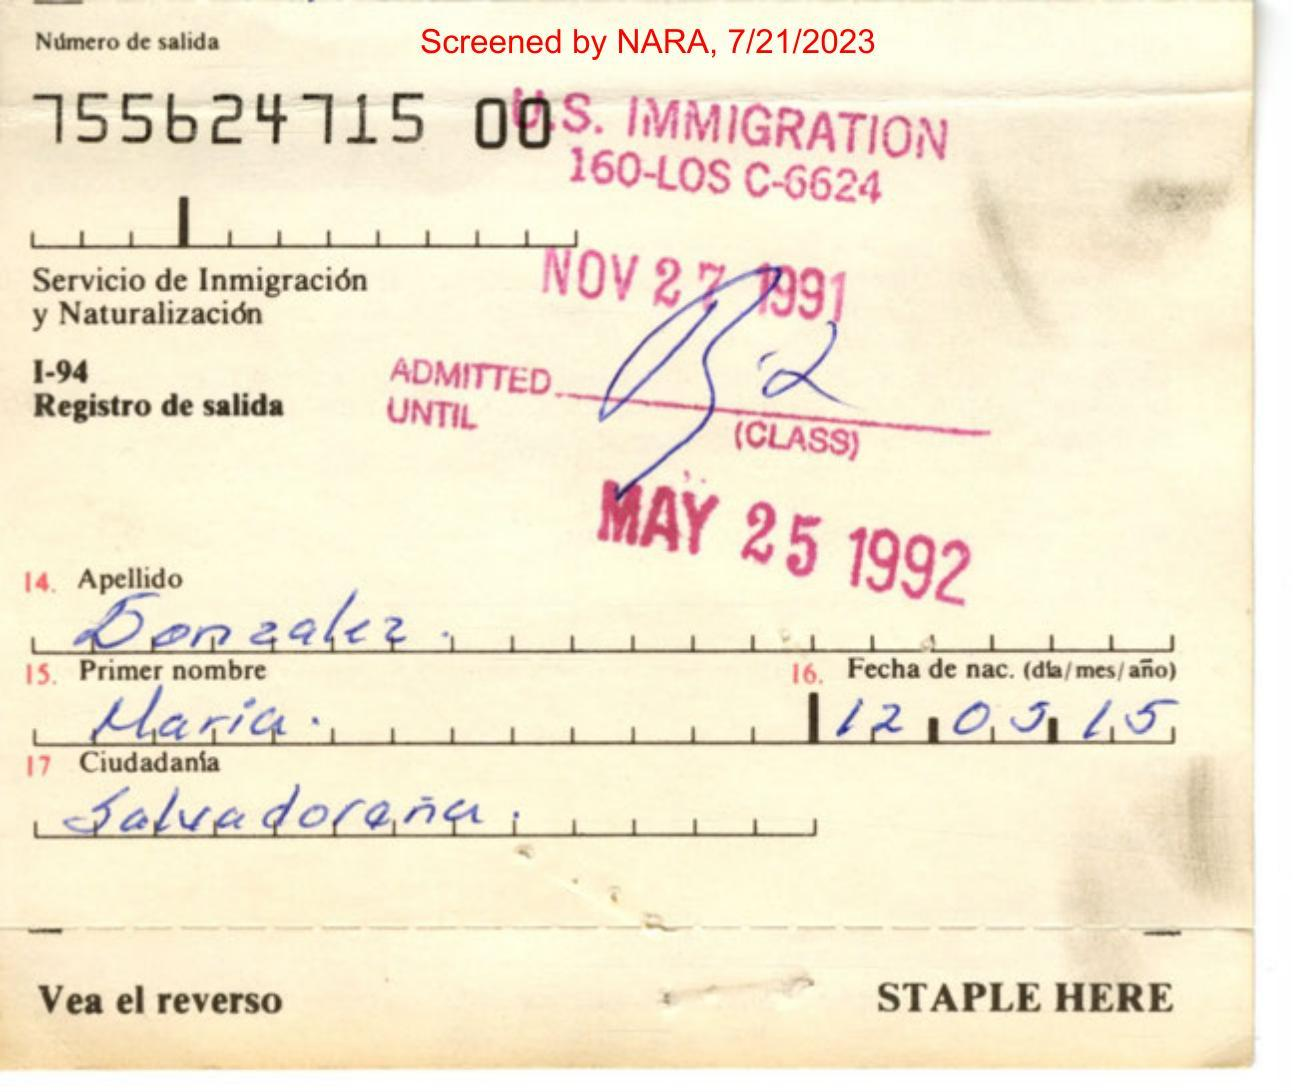 Número de salida
Screened by NARA, 7/21/2023
755624715 00
U.S. IMMIGRATION
160-LOS C-6624
NOV 27 1991
Servicio de Inmigración
y Naturalización
I-94
Registro de salida
B-2
ADMITTED
UNTIL
(CLASS)
MAY 25 1992
14. Apellido
Gonzalez.
15. Primer nombre
16. Fecha de nac. (día/mes/año)
Maria.
12 05 15
17 Ciudadanía
Salvadoreña.
Vea el reverso
STAPLE HERE